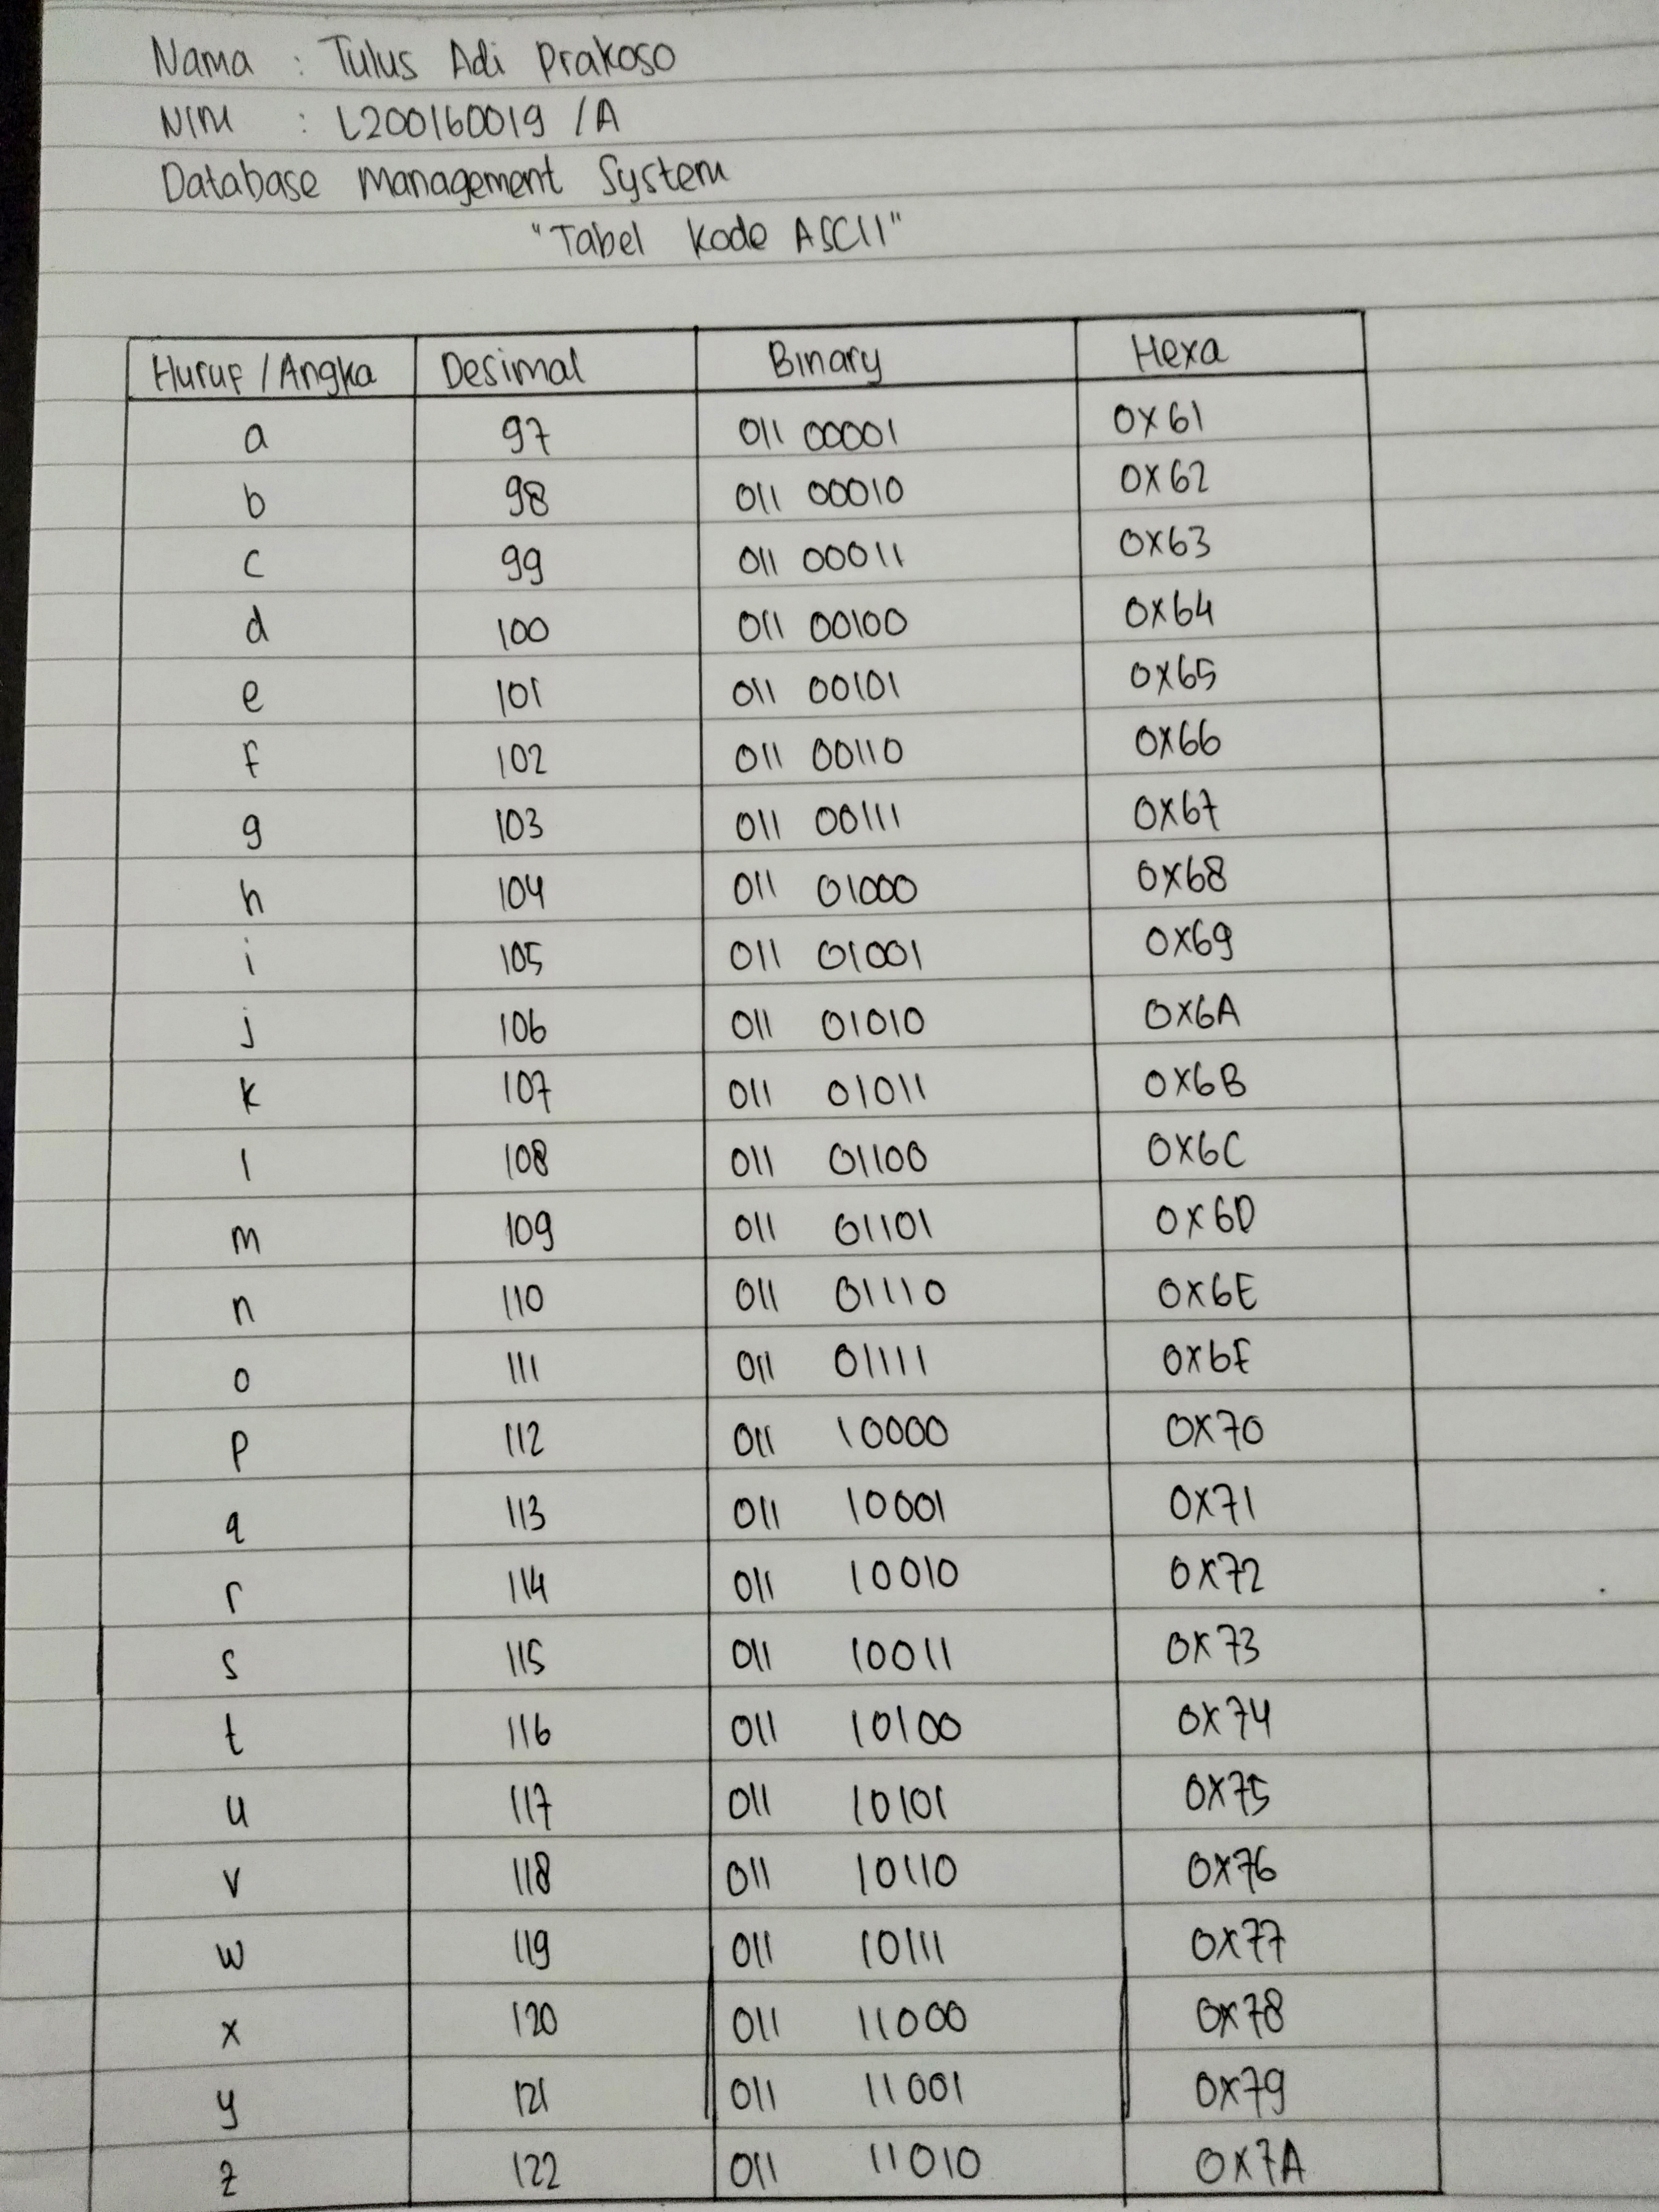 Nama : Tulus Adi Prakoso
NIM : L200160019 / A
Database Management System
"Tabel Kode ASCII"
Huruf / Angka Desimal Binary Hexa
a 97 011 00001 0x61
b 98 011 00010 0x62
c 99 011 00011 0x63
d 100 011 00100 0x64
e 101 011 00101 0x65
f 102 011 00110 0x66
g 103 011 00111 0x67
h 104 011 01000 0x68
i 105 011 01001 0x69
j 106 011 01010 0x6A
k 107 011 01011 0x6B
l 108 011 01100 0x6C
m 109 011 01101 0x6D
n 110 011 01110 0x6E
o 111 011 01111 0x6F
p 112 011 10000 0x70
q 113 011 10001 0x71
r 114 011 10010 0x72
s 115 011 10011 0x73
t 116 011 10100 0x74
u 117 011 10101 0x75
v 118 011 10110 0x76
w 119 011 10111 0x77
x 120 011 11000 0x78
y 121 011 11001 0x79
z 122 011 11010 0x7A